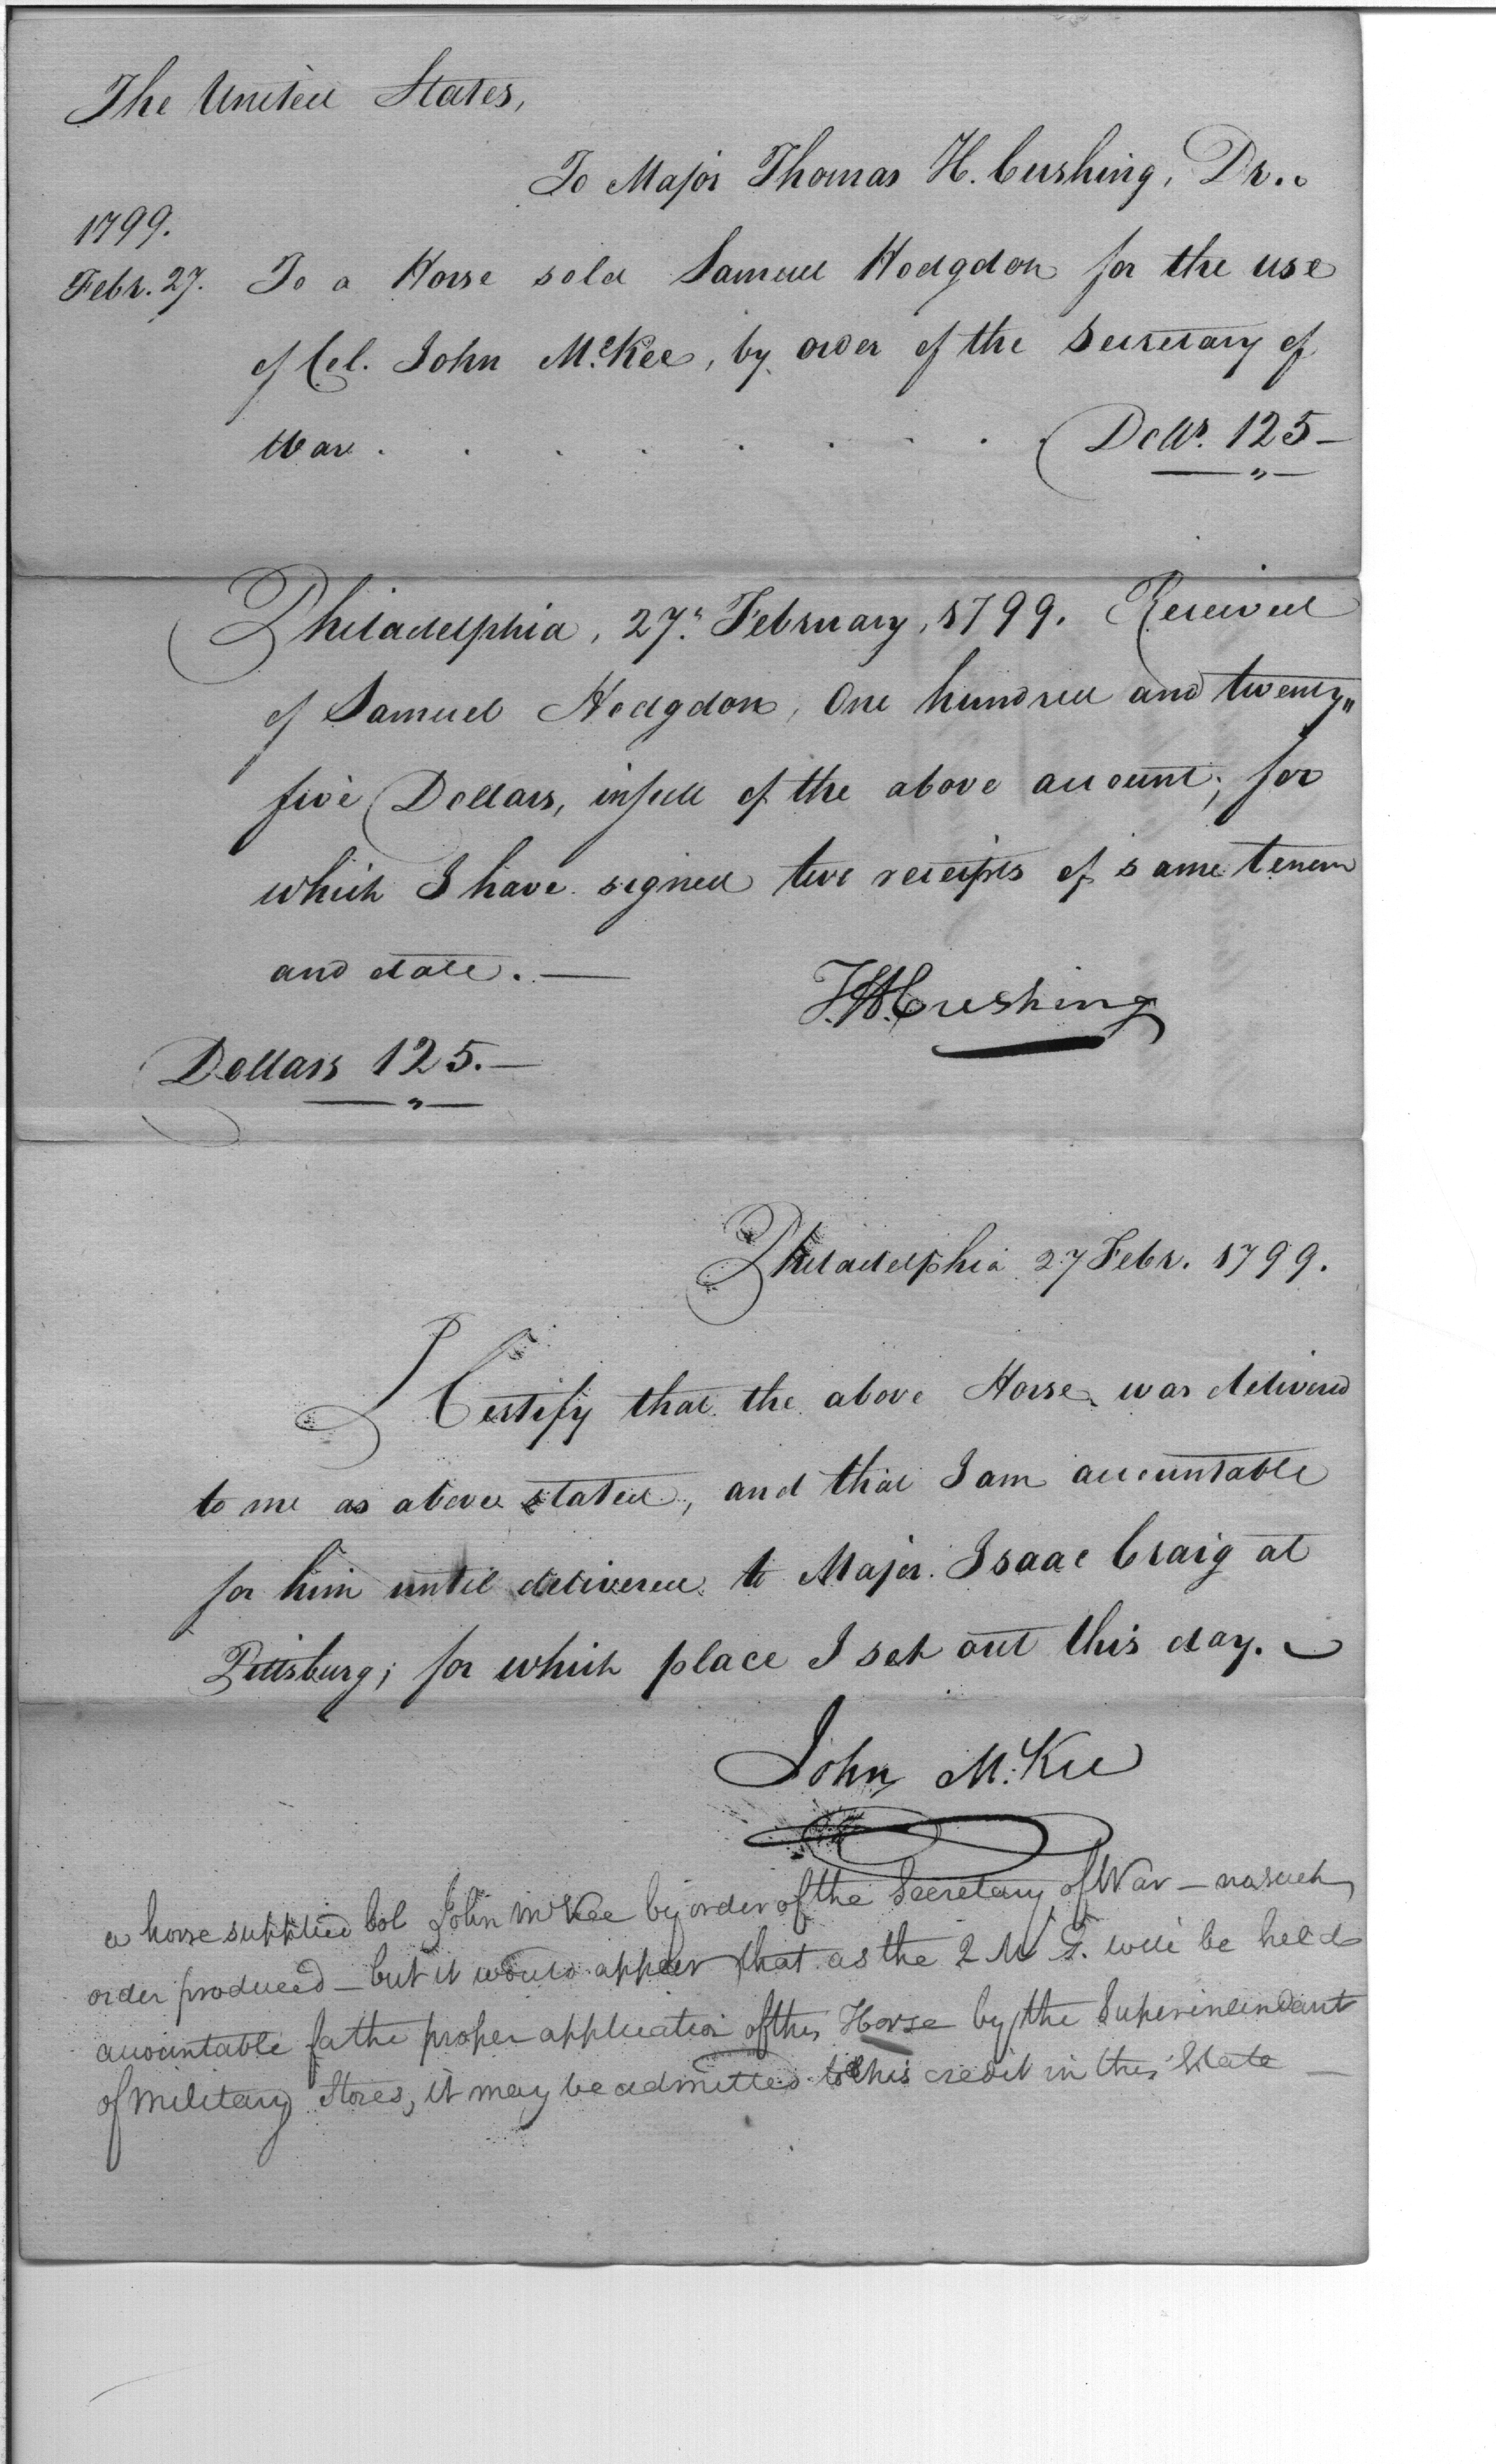 The United States,
To Major Thomas H. Cushing, Dr..
1799.
Febr. 27. To a Horse sold Samuel Hodgdon for the use
of Col. John McKee, by order of the Secretary of
War . . . . . . . . Dolls. 125—
Philadelphia, 27th February, 1799. Received
of Samuel Hodgdon, One hundred and twenty„
five Dollars, in full of the above account; for
which I have signed two receipts of same tenor
and date. —
T.H. Cushing
Dollars 125.—
Philadelphia 27 Febr. 1799.
I Certify that the above Horse was delivered
to me as above stated, and that I am accountable
for him until delivered to Major Isaac Craig at
Pittsburg; for which place I set out this day.
John McKee
a horse supplied Col John McKee by order of the Secretary of War — no such
order produced — but it would appear that as the Q M G. will be held
accountable for the proper application of this Horse by the Superintendant
of Military Stores, it may be admitted to his credit in this State —